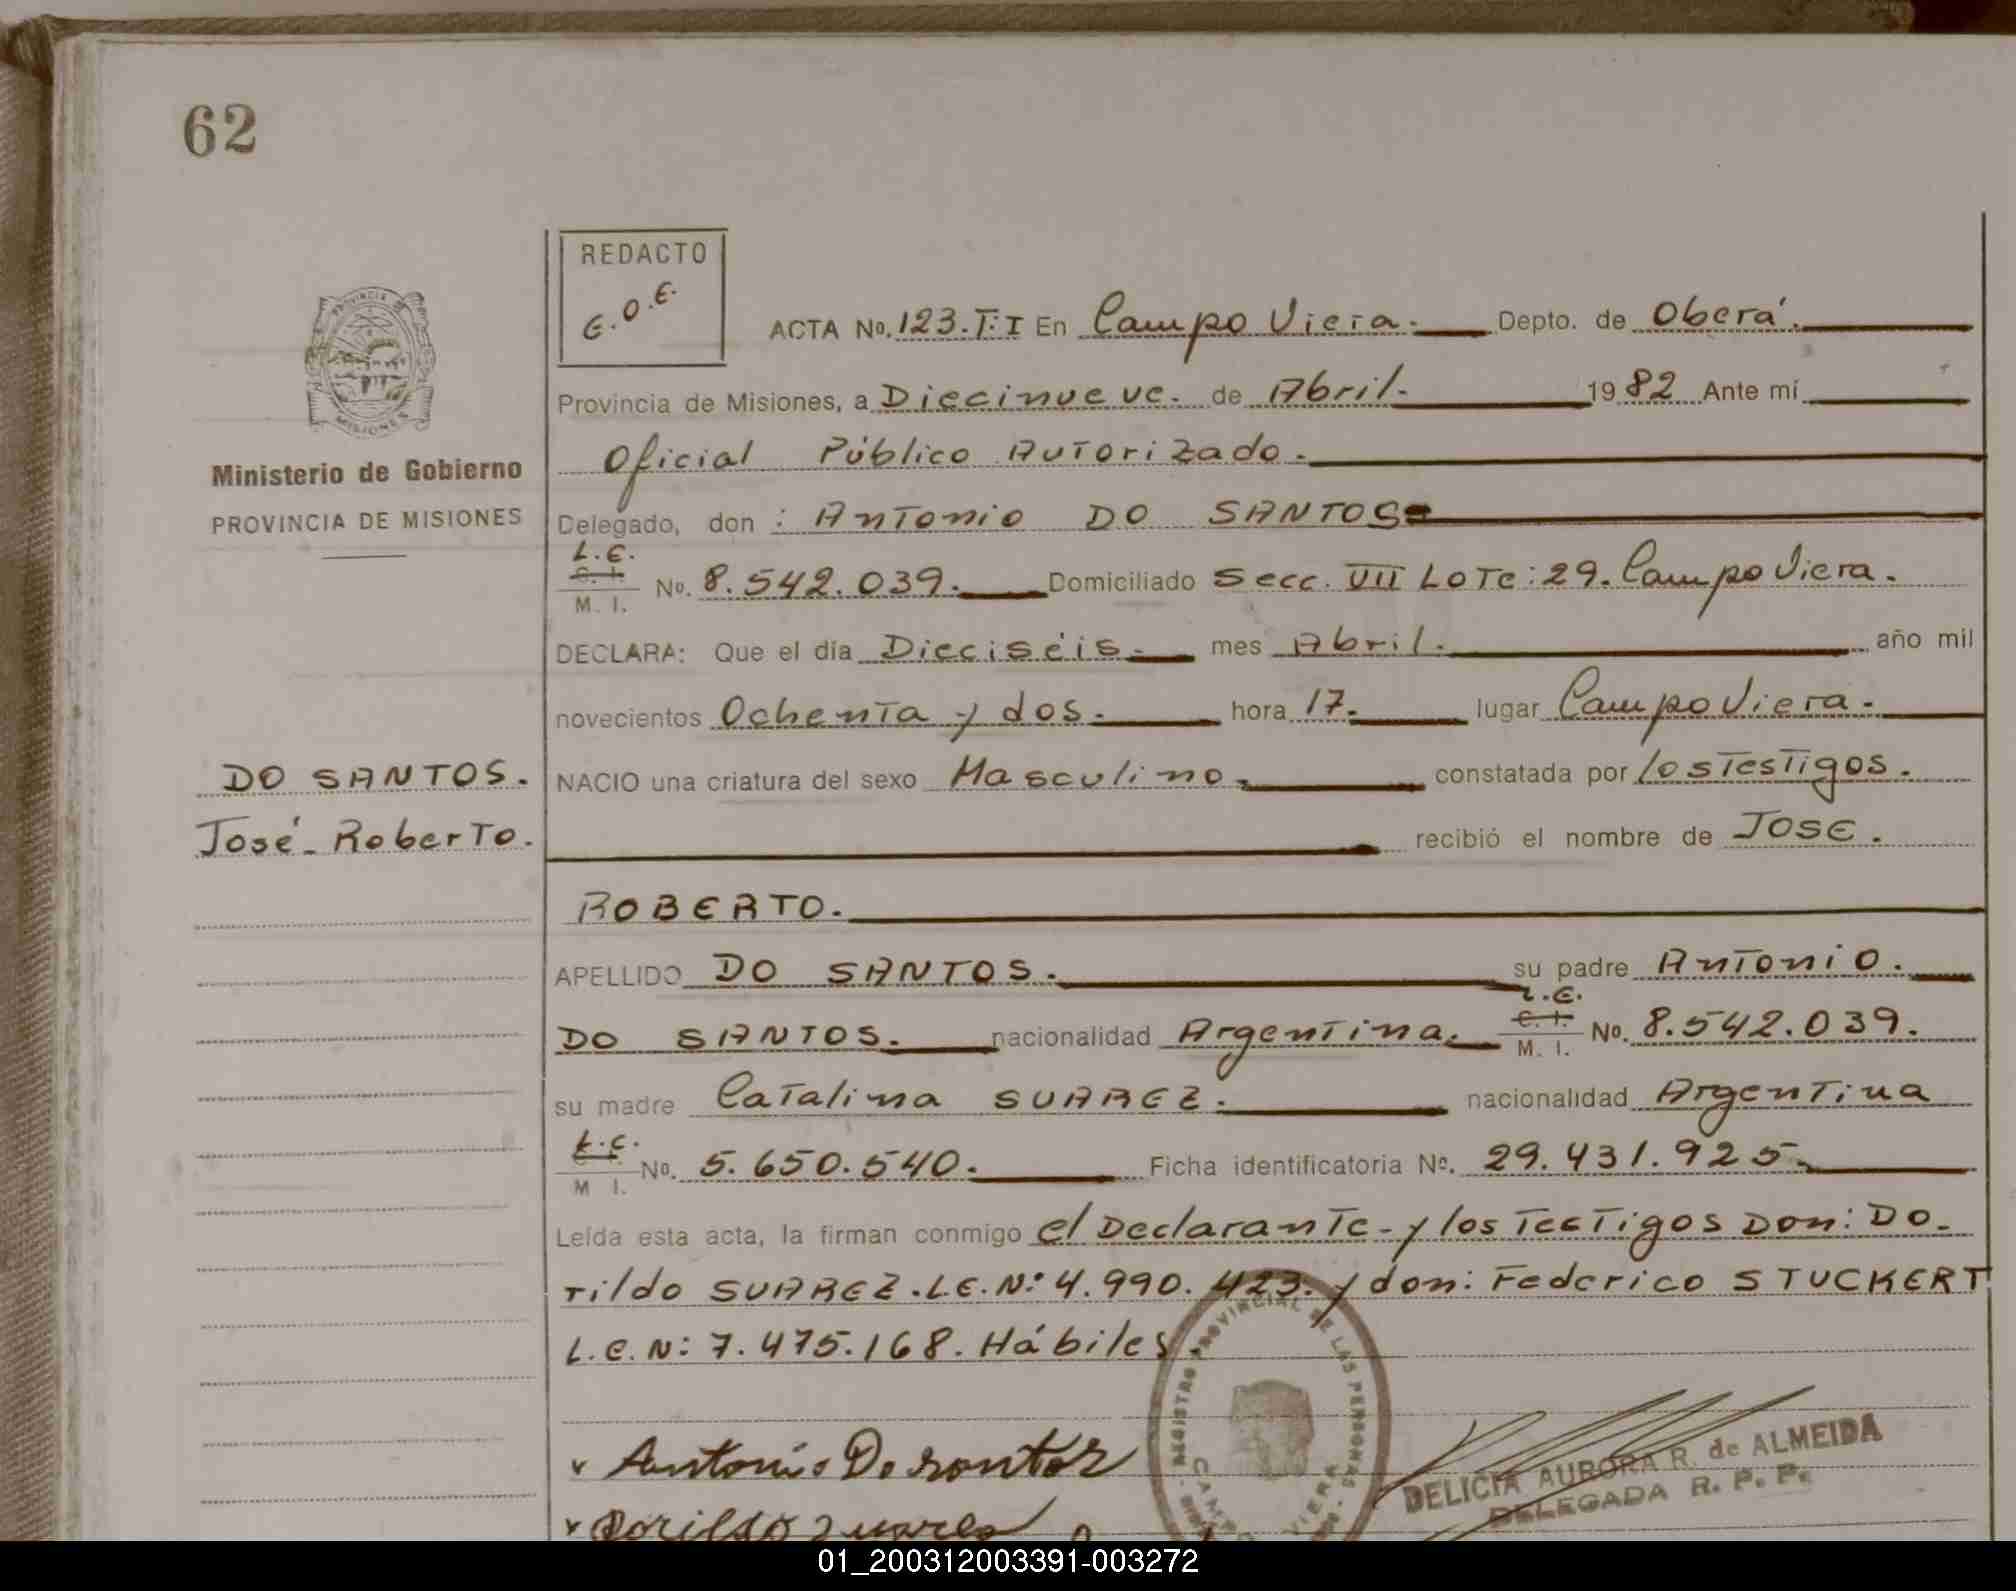 62
REDACTO
E.O.E.
PROVINCIA DE
MISIONES
Ministerio de Gobierno
PROVINCIA DE MISIONES
DO SANTOS.
José-Roberto.
ACTA No. 123.T:I En Campo Viera. Depto. de Oberá.
Provincia de Misiones, a Diecinueve. de Abril. 1982 Ante mí
Oficial Público Autorizado.
Delegado, don : Antonio DO SANTOS
L.E.
C. I.
M. I. No. 8.542.039. Domiciliado Secc. VII LOTE:29. Campo Viera.
DECLARA: Que el día Dieciséis. mes Abril. año mil
novecientos Ochenta y dos. hora 17. lugar Campo Viera.
NACIO una criatura del sexo Masculino. constatada por los Testigos.
recibió el nombre de JOSE.
ROBERTO.
APELLIDO DO SANTOS. su padre Antonio.
DO SANTOS. nacionalidad Argentina. L.E. C. I. M. I. No. 8.542.039.
su madre Catalina SUAREZ. nacionalidad Argentina
L.C.
M I. No. 5.650.540. Ficha identificatoria No. 29.431.925.
Leída esta acta, la firman conmigo el Declarante-y los Tectigos Don: DO-
rildo SUAREZ.L.E.N: 4.990.423. y don: Federico STUCKERT
L.E.N: 7.475.168. Hábiles.
REGISTRO PROVINCIAL DE LAS PERSONAS
CAMPO VIERA
Antonio Do santos
Dorildo Suares
DELICIA AURORA R. de ALMEIDA
DELEGADA R. P. P.
01_200312003391-003272